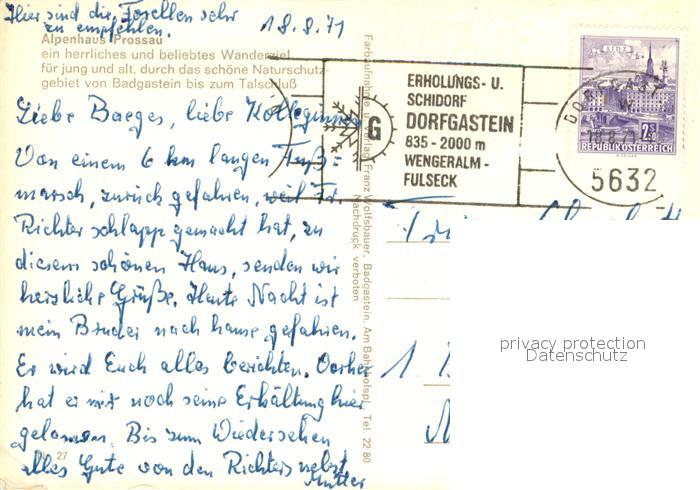 Hier sind die Forellen sehr
zu empfehlen.
18.8.71
Alpenhaus Prossau
ein herrliches und beliebtes Wanderziel
für jung und alt, durch das schöne Naturschutz-
gebiet von Badgastein bis zum Talschluß
Liebe Baeges, liebe Kolleginnen
Von einem 6 km langen Fuß=
marsch, zurück gefahren, weil Fr.
Richter schlapp gemacht hat, zu
diesem schönen Haus, senden wir
herzliche Grüße. Heute Nacht ist
mein Bruder nach hause gefahren.
Er wird Euch alles berichten. Vorher
hat er mir noch seine Erkältung hier
gelassen. Bis zum Wiedersehen
alles Gute von den Richters nebst
Mutter
27
Farbaufnahme u. Verlag Franz Wolfsbauer, Badgastein, Am Bahnhofspl., Tel. 22 80
Nachdruck verboten
G
ERHOLUNGS- U.
SCHIDORF
DORFGASTEIN
835-2000 m
WENGERALM-
FULSECK
LINZ
2.S
REPUBLIK ÖSTERREICH
5632
1.
privacy protection
Datenschutz